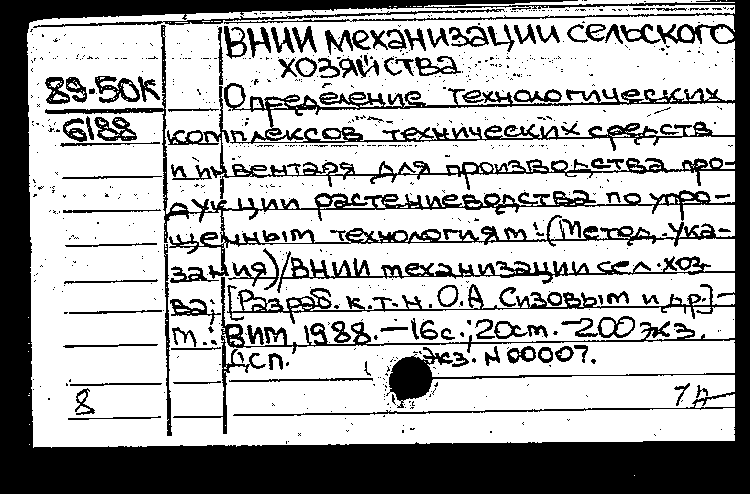 ВНИИ механизации сельского
хозяйства
89-50К
Определение технологических
6188
комплексов технических средств
и инвентаря для производства про-
дукции растениеводства по упро-
щенным технологиям: (Метод. ука-
зания)/ВНИИ механизации сел. хоз-
ва; [Разраб. к.т.н. О.А. Сизовым и др.]-
М.: ВИМ, 1988. - 16с.; 20см. - 200 экз.
ДСП. Экз. N 00007.
8